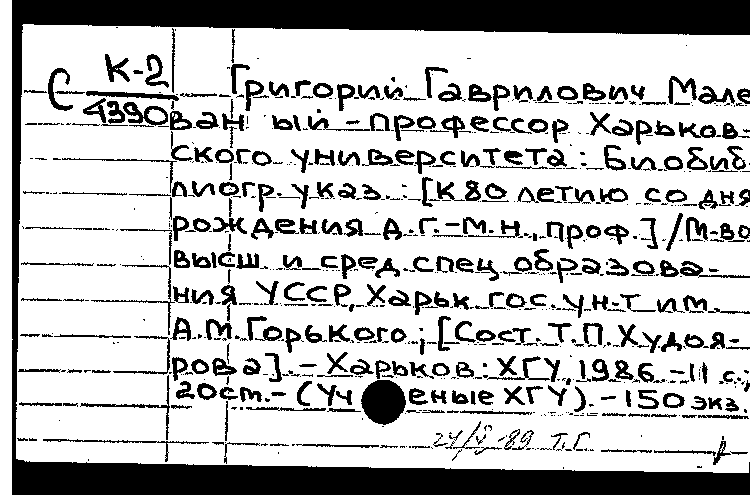 С К-2
4390
Григорий Гаврилович Мале
ван ый - профессор Харьков-
ского университета : Биобиб
лиогр. указ. : [К 80 летию со дня
рождения д.г.-м.н., проф.] / М-во
высш. и сред. спец. образова-
ния УССР, Харьк. гос. ун-т им.
А.М. Горького ; [Сост. Т.П. Худоя-
рова]. - Харьков : ХГУ, 1986. - 11 с.;
20 см. - (Уч еные ХГУ). - 150 экз.
24/V-89 Т.Г.